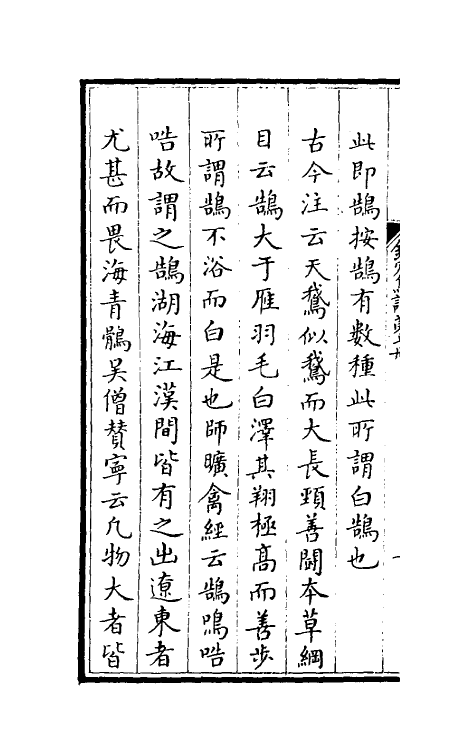 此即鵠按鵠有数種此所謂白鵠也
古今注云天鵞似鵞而大長頸善鬭本草綱
目云鵠大于雁羽毛白澤其翔極髙而善步
所謂鵠不浴而白是也師曠禽經云鵠鳴哠
哠故謂之鵠湖海江漢間皆有之出遼東者
尤甚而畏海青鶻吴僧賛寧云凡物大者皆